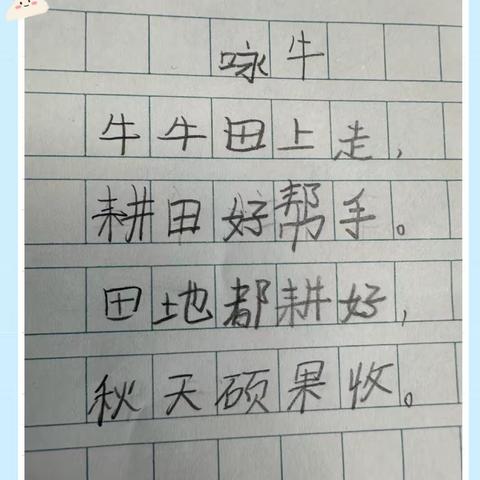 咏牛
牛牛田上走,
耕田好帮手。
田地都耕好,
秋天硕果收。